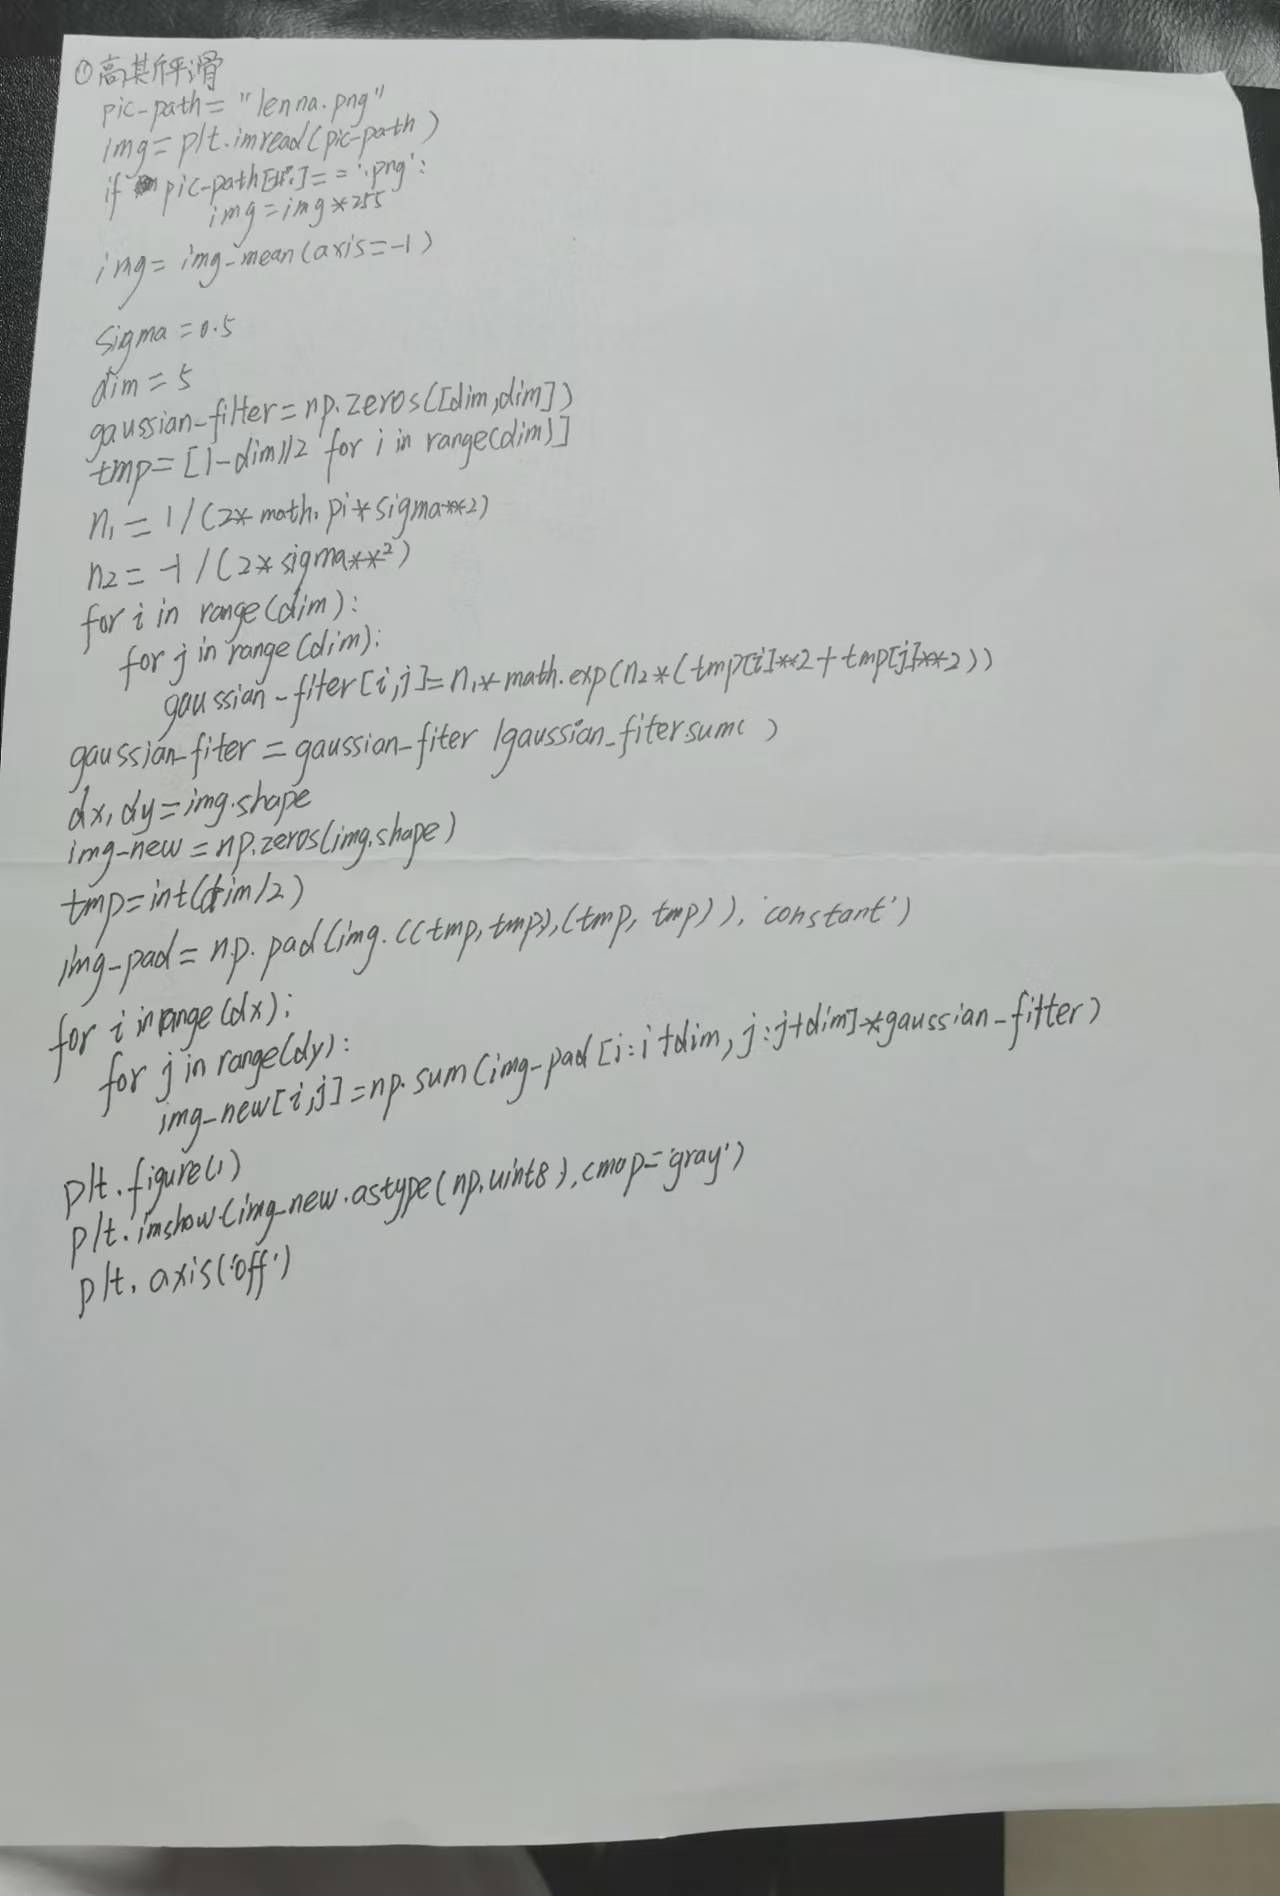 ①高斯平滑
pic-path="lenna.png"
img=plt.imread(pic-path)
if pic-path[]=='.png':
img=img*255
img=img-mean(axis=-1)
sigma=0.5
dim=5
gaussian-filter=np.zeros([dim,dim])
tmp=[1-dim//2 for i in range(dim)]
n₁=1/(2*math.pi*sigma**2)
n2=-1/(2*sigma**2)
for i in range(dim):
for j in range(dim):
gaussian-fiter[i,j]=n₁*math.exp(n2*(tmp[i]**2+tmp[j]**2))
gaussian-fiter=gaussian-fiter/gaussian-fiter.sum()
dx,dy=img.shape
img-new=np.zeros(img.shape)
tmp=int(dim/2)
img-pad=np.pad(img.((tmp,tmp),(tmp,tmp)),'constant')
for i in range(dx):
for j in range(dy):
img-new[i,j]=np.sum(img-pad[i:i+dim,j:j+dim]*gaussian-fitter)
plt.figure(1)
plt.imshow(img-new.astype(np.uint8),cmap='gray')
plt.axis('off')